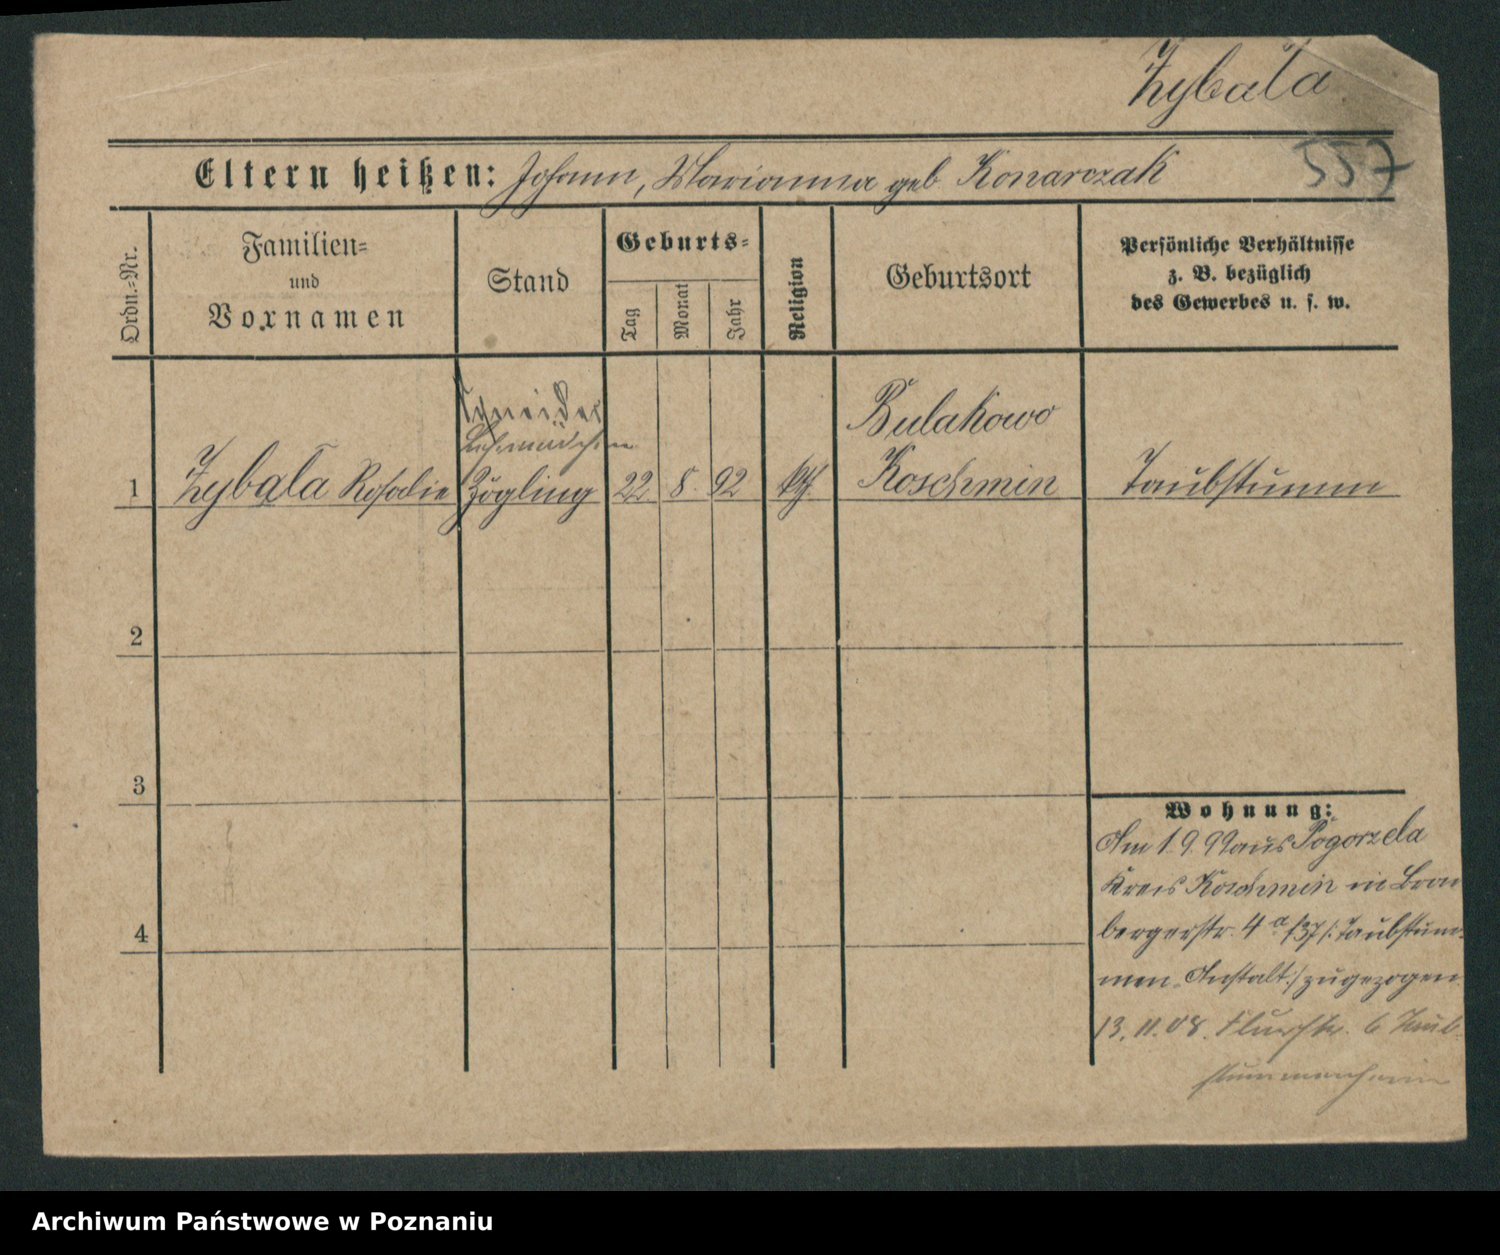 Zybała
557
Eltern heißen: Johann, Marianna geb Konarczak
Ordn.-Nr.
Familien-
und
Vornamen
Stand
Geburts-
Tag
Monat
Jahr
Religion
Geburtsort
Persönliche Verhältnisse
z. B. bezüglich
des Gewerbes u. s. w.
Schneider
Lehrmädchen
Bulakowo
1 Zybała Rosalie Zögling 22 8. 92 kth. Koschmin Taubstumm
2
3
Wohnung:
Am 1. 9. 99 aus Pogorzela
Kreis Koschmin in Brom
4
bergerstr. 4 a /37 /: Taubstum-
men-Anstalt :/ zugezogen
13. 11. 08. Flurstr. 6 Taub
stummenheim
Archiwum Państwowe w Poznaniu